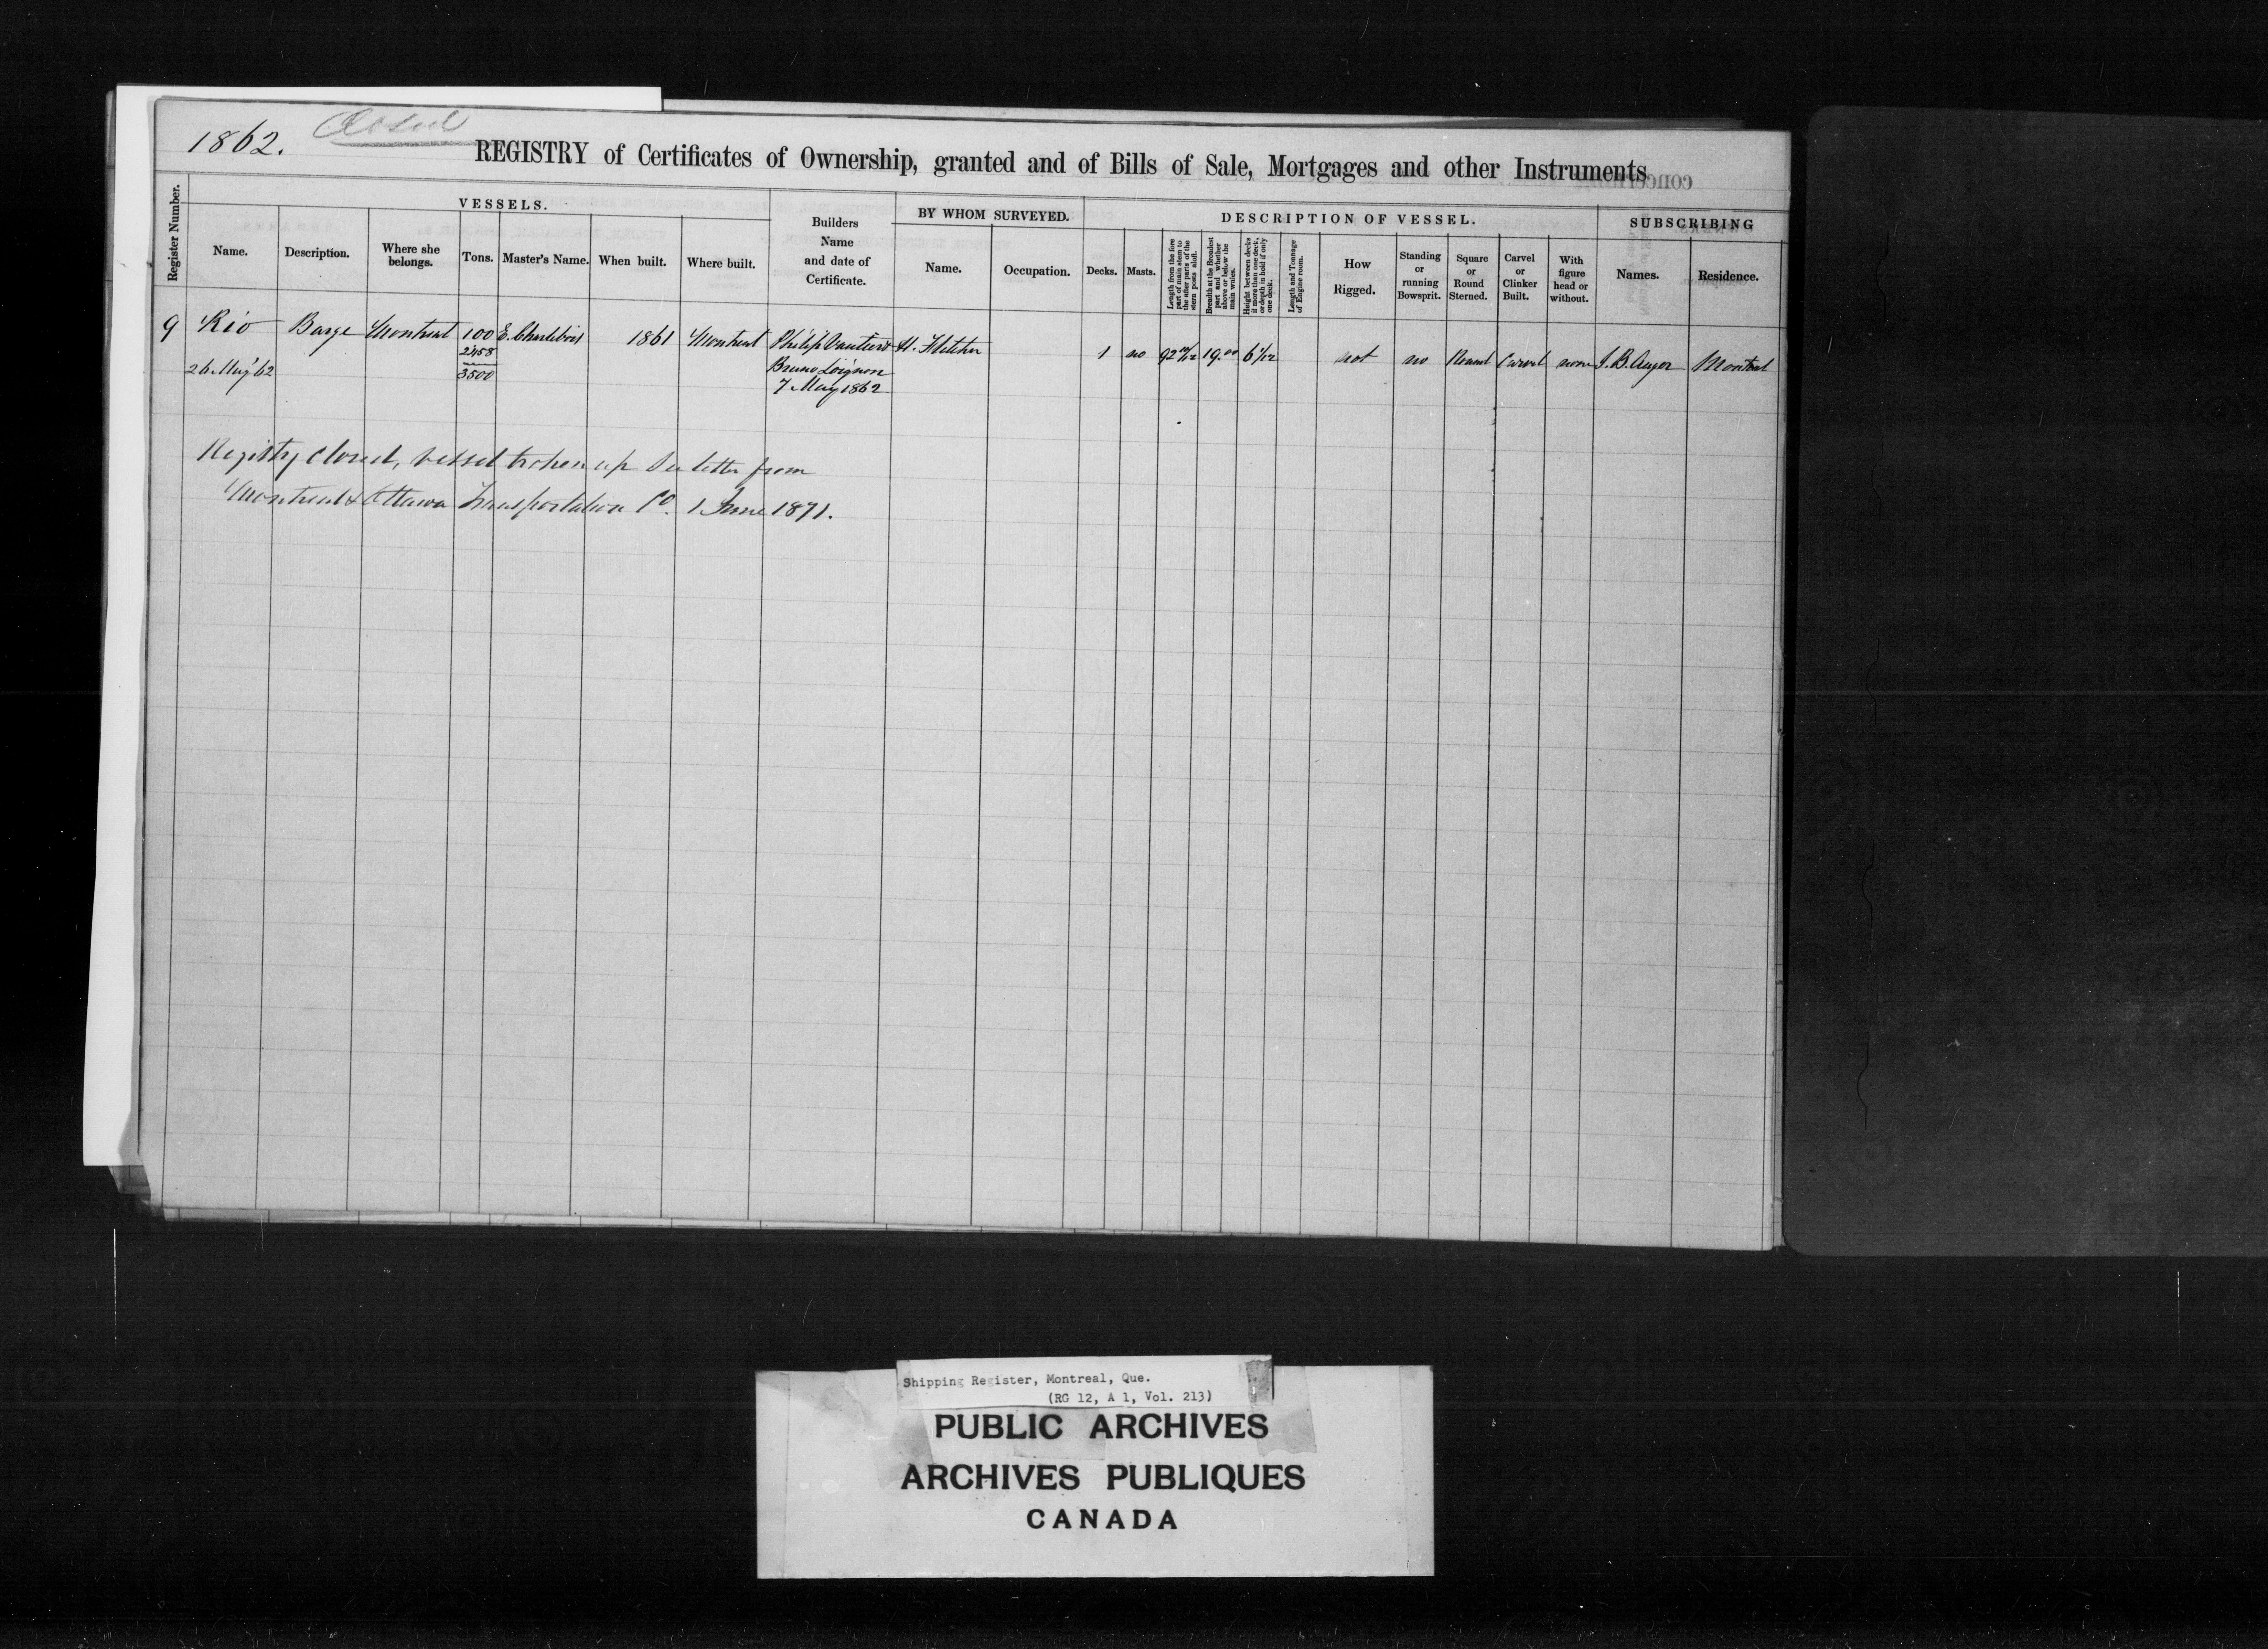 1862. Closed
REGISTRY of Certificates of Ownership, granted and of Bills of Sale, Mortgages and other Instruments
Register Number.
VESSELS.
Name.
Description.
Where she
belongs.
Tons.
Master's Name.
When built.
Where built.
Builders
Name
and date of
Certificate.
BY WHOM SURVEYED.
Name.
Occupation.
DESCRIPTION OF VESSEL.
Decks.
Masts.
Length from the fore
part of main stem to
the after parts of the
stern posts aloft.
Breadth at the Broadest
part and whether
above or below the
main wales.
Height between decks
if more than one deck,
or depth in hold if only
one deck.
Length and Tonnage
of Engine room.
How
Rigged.
Standing
or
running
Bowsprit.
Square
or
Round
Sterned.
Carvel
or
Clinker
Built.
With
figure
head or
without.
SUBSCRIBING
Names.
Residence.
9 Rio Barge Montreal 100 E. Charlebois 1861 Montreal Philip H. 1 no 92 10/12 19.00 6 1/12 not no Round Carvel none J. B. Auger Montreal
2458
3500
26 May '62
Bruno Loignon
7 May 1862
Registry closed, vessel broken up See letter from
Montreal & Ottawa Transportation Co. 1 June 1871.
Shipping Register, Montreal, Que.
(RG 12, A 1, Vol. 213)
PUBLIC ARCHIVES
ARCHIVES PUBLIQUES
CANADA